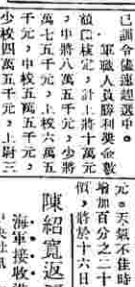 已訓令儘速趕選中。
．軍職人員勝利獎金數
額已核定，計上將十萬元
，中將八萬五千元，少將
萬七五千元，上校六萬五
千元，中校五萬五千元，
少校四萬五千元，上尉三
元。天氣不佳時
增加百分之二十
價，將於十六日
陳紹寬返
海軍接收